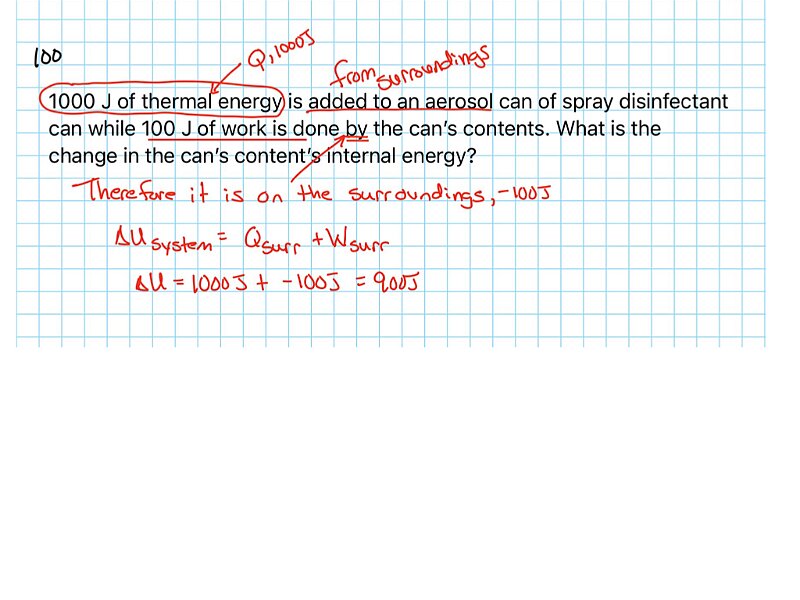 100
Q, 1000J
from surroundings
1000 J of thermal energy is added to an aerosol can of spray disinfectant
can while 100 J of work is done by the can's contents. What is the
change in the can's content's internal energy?
Therefore it is on the surroundings, -100J
ΔU system = Qsurr + Wsurr
ΔU = 1000J + -100J = 900J